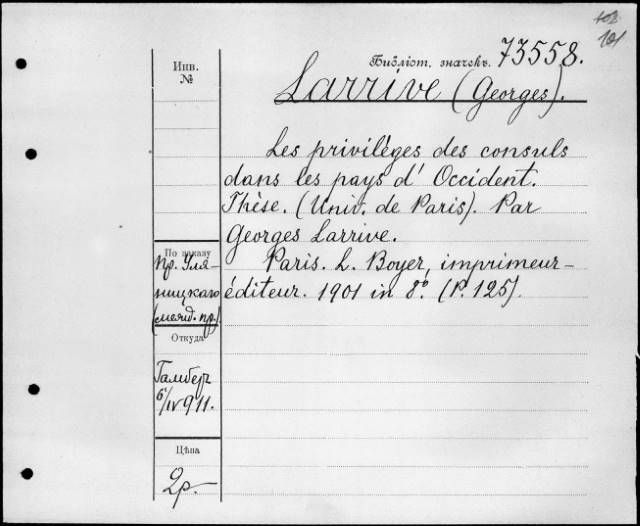 юр.
101
Библіот. значекъ. 73558.
Инв.
№
Larrive (Georges).
Les privilèges des consuls
dans les pays d'Occident.
Thèse. (Univ. de Paris). Par
Georges Larrive.
Paris. L. Boyer, imprimeur-
éditeur. 1901 in 8° (P. 125).
По заказу
пр. Уля-
ницкаго
(межд. пр.)
Откуда
Гамбер
6/IV 911.
Цѣна
2р.-